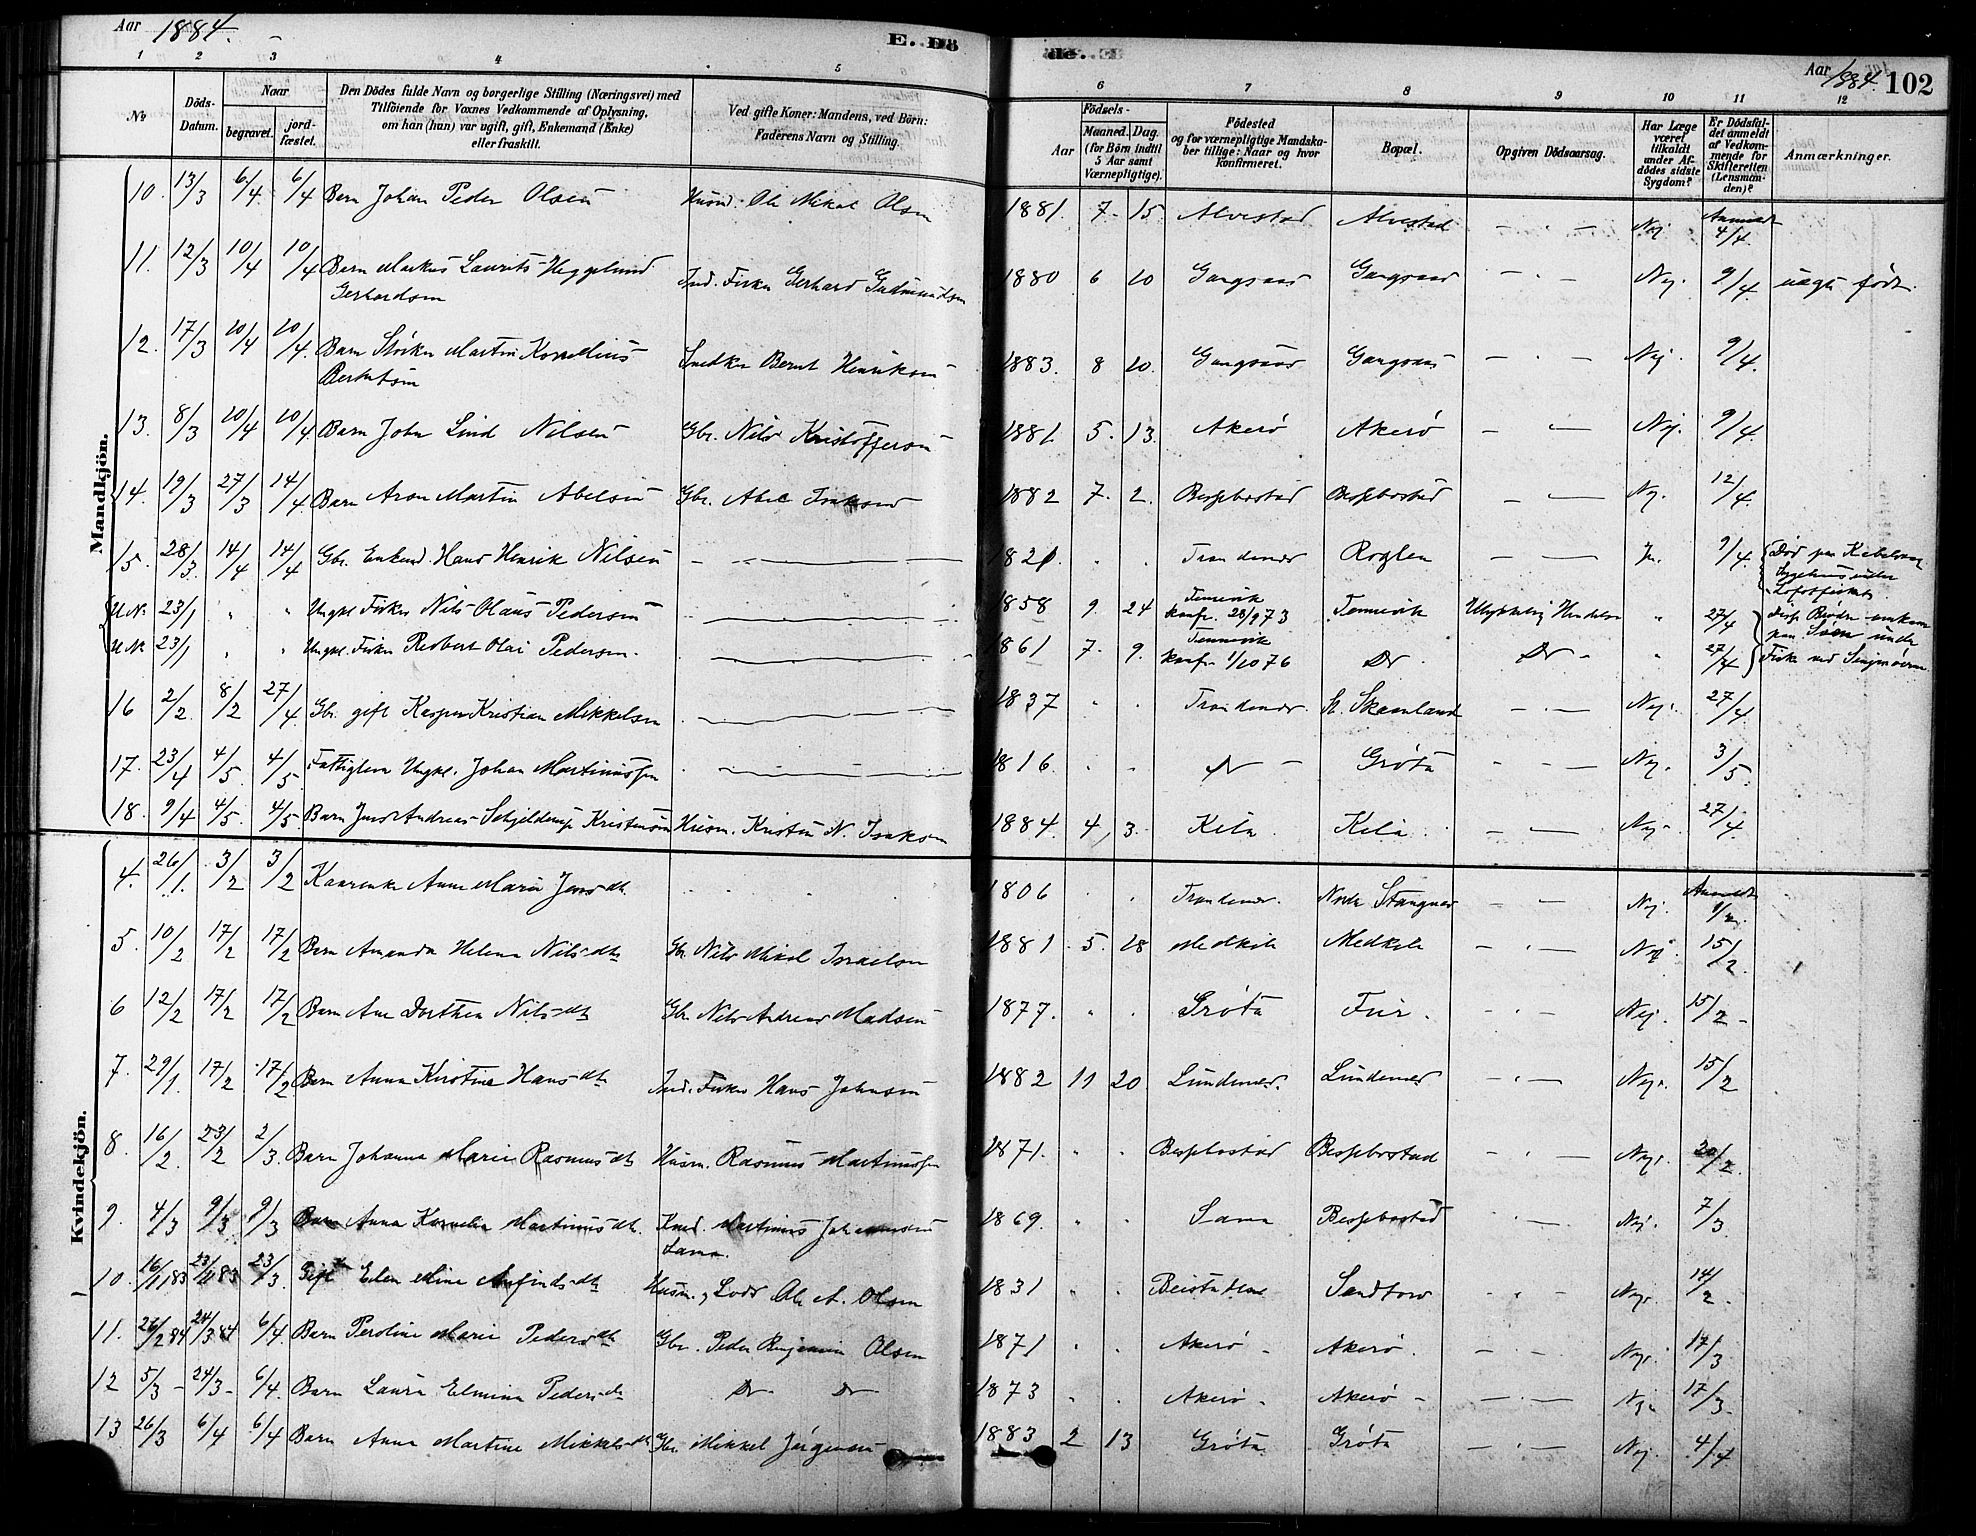 Aar 1884.
E. Dö
de.
Aar 1884. 102
1 2 3 4 5 6 7 8 9 10 11 12
No
Döds-Datum.
Naar
begravet.
jord-fæstet.
Den Dödes fulde Navn og borgerlige Stilling (Næringsvei) med
Tilföiende for Voxnes Vedkommende af Oplysning,
om han (hun) var ugift, gift, Enkemand (Enke)
eller fraskilt.
Ved gifte Koner: Mandens, ved Börn:
Faderens Navn og Stilling.
Födsels-
Aar Maaned. Dag.
(for Börn indtil
5 Aar samt
Værnepligtige).
Födested
og for værnepligtige Mandska-
ber tillige: Naar og hvor
konfirmeret.
Bopæl.
Opgiven Dödsaarsag.
Har Læge
været
tilkaldt
under Af-
dödes sidste
Sygdom?
Er Dödsfal-
det anmeldt
af Vedkom-
mende for
Skifteretten
(Lensman-
den)?
Anmærkninger.
Mandkjön.
10. 13/3 6/4 6/4 Barn Johan Peder Olsen Husmd. Ole Mikal Olsen 1881. 7. 15. Alvestad Alvestad - - Nej. Anmeldt 4/4.
11. 12/3 10/4 10/4 Barn Markus Laurits Heggelund Gerhardsen Ind. Fisker Gerhard Gudmundsen 1880 6 10 Gangsaas Gangsaas - - Nej. 9/4. uægte födt.
12. 17/3 10/4 10/4. Barn Störker Martin Kornelius Berntsen Snedker Bernt Henriksen 1883. 8 10. Gangsaas Gangsaas - - Nej. 9/4.
13. 8/3 10/4 10/4 Barn John Lind Nilsen Gbr. Nils Kristoffersen 1881 5. 13. Akerö Akerö - - Nej. 9/4.
14. 19/3 27/3 14/4. Barn Aron Martin Abelsen Gbr. Abel Isaksen 1882 7. 2. Bessebostad Bessebostad - - Nej. 12/4.
15. 28/3. 14/4 14/4 Gbr. Enkemd. Hans Henrik Nilsen - 1821. Trondenæs Roglen - - Ja. 9/4. Död paa Kabelvaag Sygehus under Lofotfisket.
U.N. 23/1 " " Ungkl. Fisker Nils Olaus Pedersen 1858 9. 24 Tennevik konfr. 28/9 73 Tennevik Ulykkelig Hændelse " 27/4 Disse Brödre omkom paa Söen under Fiske ved
U.N. 23/1 " " Ungkl. Fisker Robert Olai Pedersen. 1861 7. 9. Tennevik konfr. 1/10 76 Do Do " 27/4
16 2/2. 8/2 27/4 Gbr. gift Kasper Kristian Mikkelsen 1837 " " Trondenæs. Skaanland - - Nej. 27/4.
17. 23/4 4/5. 4/5 Fattiglem Ungkl. Johan Martinussen 1816. " " Do Gröta - - Nej. 3/5.
18. 9/4 4/5. 4/5 Barn Jens Andreas Schjelderup Kristensen Husm. Kristen N. Isaksen 1884. 4, 3. Kila Kila - - Nej. 27/4.
Kvindekjön.
4. 26/1. 3/2 3/2 Anne Maria Jensdtr. 1806 Trondenæs. Nedre Stangnes - - Nej. Anmeldt
5. 10/2 17/2 17/2 Barn Amanda Helena Nilsdtr Gbr. Nils Mikal Israelsen 1881 5. 18 Medkila Medkila - - Nej. 15/2.
6 12/2 17/2 17/2 Barn Ane Dorthea Nilsdtr Gbr. Nils Andreas Madsen 1877. " " Gröta - - Nej. 15/2
7. 29/1. 17/2 17/2 Barn Anna Kristine Hansdtr Ind. Fisker Hans Johnsen 1882 11 20 Lundenes. Lundenes - - Nej. 15/2
8. 16/2. 23/2 2/3. Barn Johanna Marie Rasmusdtr Husm. Rasmus Martinussen 1871. " " Bessebostad Bessebostad - - Nej. 20/2.
9. 4/3 9/3. 9/3 Barn Anna Kornelia Martinusdtr. Martinus Johannesen Sama. 1869. " " Sama Bessebostad - - Nej. 7/3
10. 16/11 83 23/11 83 23/3. Gift Elen Mine Arfindsdtr Husm. Lods Ole A. Olsen 1831 " " Beistaden Sandtorv - - Nej. 14/2.
11. 26/2 84 24/3 84 6/4. Barn Peroline Marie Pedersdtr Gbr. Peder Benjamin Olsen 1871 " " Akerö - Akerö. - - Nej. 17/3
12 5/3 - 24/3 - 6/4. Barn Laura Elmina Pedersdtr Do Do 1873 " " Akerö - Akerö - - - Nej. 17/3.
13 26/3 6/4 6/4 Barn Anna Martine Mikkelsdtr Gbr Mikkel Jörgensen 1883 2 13 Gröta Gröta - - Nej. 4/4.